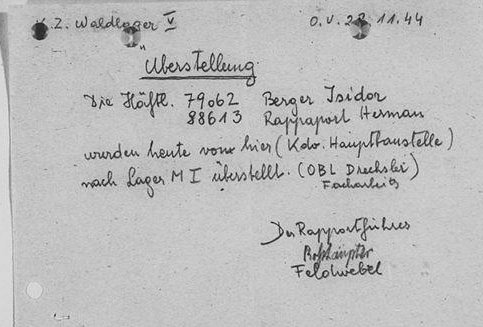 K.Z. Waldlager V
O.V. 28.11.44
"Überstellung
Die Häftl. 79062 Berger Isidor
88613 Rappaport Herman
wurden heute von hier (Kdo. Hauptbaustelle)
nach Lager M I überstellt. (OBL Drechsler)
Facharbeit
Der Rapportführer
Feldwebel